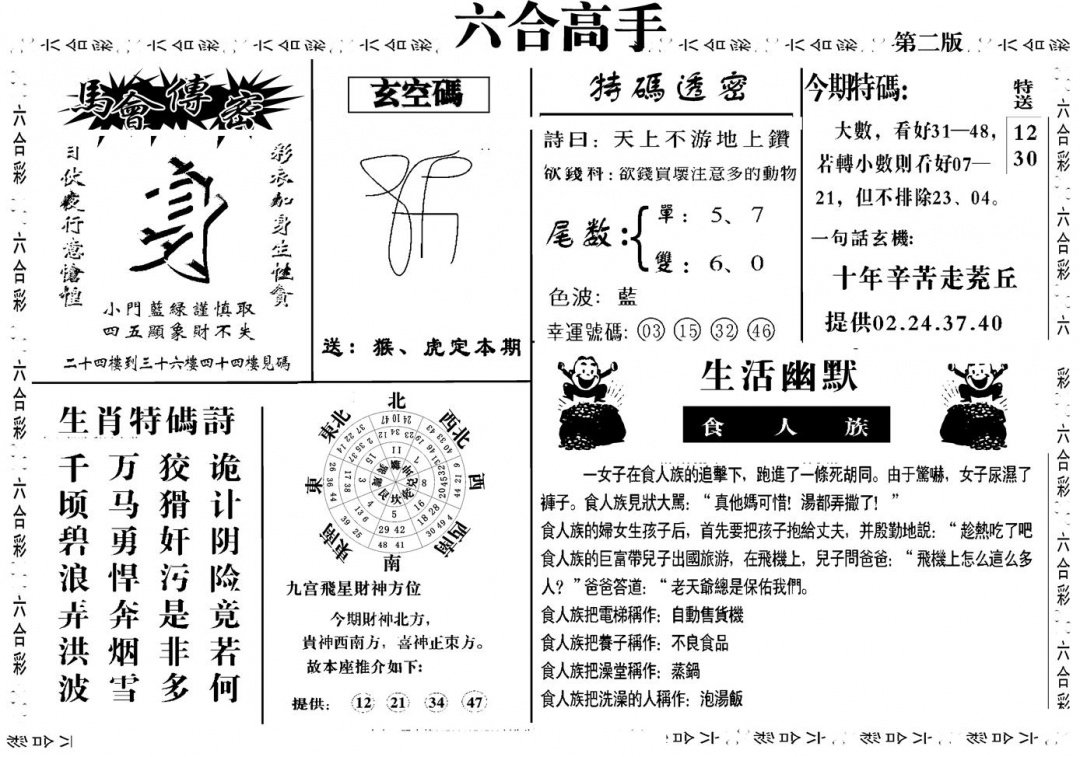 六合高手
第二版
馬會傳密
彩衣加身生性貪
日伏夜行意愴惶
小門藍緑謹慎取
四五顯象財不失
二十四樓到三十六樓四十四樓見碼
玄空碼
送：猴、虎定本期
特碼透密
詩曰：天上不游地上鑽
欲錢料：欲錢買壞注意多的動物
尾数：
單：5、7
雙：6、0
色波：藍
幸運號碼：03 15 32 46
今期特碼:
大數，看好31—48，
若轉小數則看好07—
21，但不排除23、04。
特送
12
30
一句話玄機:
十年辛苦走茺丘
提供02.24.37.40
生肖特碼詩
诡计阴险竟若何
狡猾奸污是非多
万马勇悍奔烟雪
千顷碧浪弄洪波
北
東北
西北
東
西
東南
西南
南
九宫飛星財神方位
今期財神北方，
貴神西南方，喜神正東方。
故本座推介如下:
提供: 12 21 34 47
生活幽默
食人族
一女子在食人族的追擊下，跑進了一條死胡同。由于驚嚇，女子尿濕了
褲子。食人族見狀大罵：“真他媽可惜！湯都弄撒了！”
食人族的婦女生孩子后，首先要把孩子抱給丈夫，并殷勤地説：“趁熱吃了吧
食人族的巨富帶兒子出國旅游，在飛機上，兒子問爸爸：“飛機上怎么這么多
人？”爸爸答道：“老天爺總是保佑我們。
食人族把電梯稱作：自動售貨機
食人族把養子稱作：不良食品
食人族把澡堂稱作：蒸鍋
食人族把洗澡的人稱作：泡湯飯